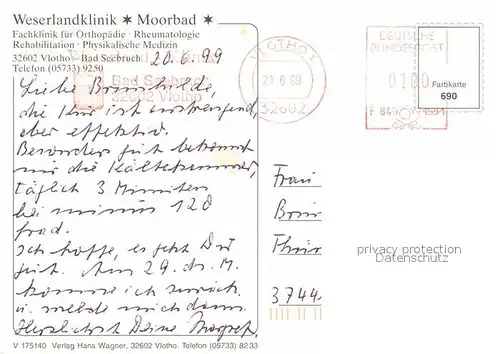 Weserlandklinik ✶ Moorbad ✶
Fachklinik für Orthopädie · Rheumatologie
Rehabilitation · Physikalische Medizin
32602 Vlotho · Bad Seebruch
Telefon (05733) 9250
20.6.99
Bad Seebruch
32602 Vlotho
VLOTHO 1
21.6.99
32602
DEUTSCHE
BUNDESPOST
0100
Farbkarte
690
Liebe Brunhilde,
die Kur ist anstrengend,
aber effektiv.
Besonders gut bekommt
mir die Kältekammer,
täglich 3 Minuten
bei minus 120
Grad.
Ich hoffe, es geht Dir
gut. Am 29. d. M.
komme ich zurück
u. melde mich dann.
Herzlichst Deine Margret
Frau
3744
privacy protection
Datenschutz
V 175140 Verlag Hans Wagner, 32602 Vlotho. Telefon (05733) 8233